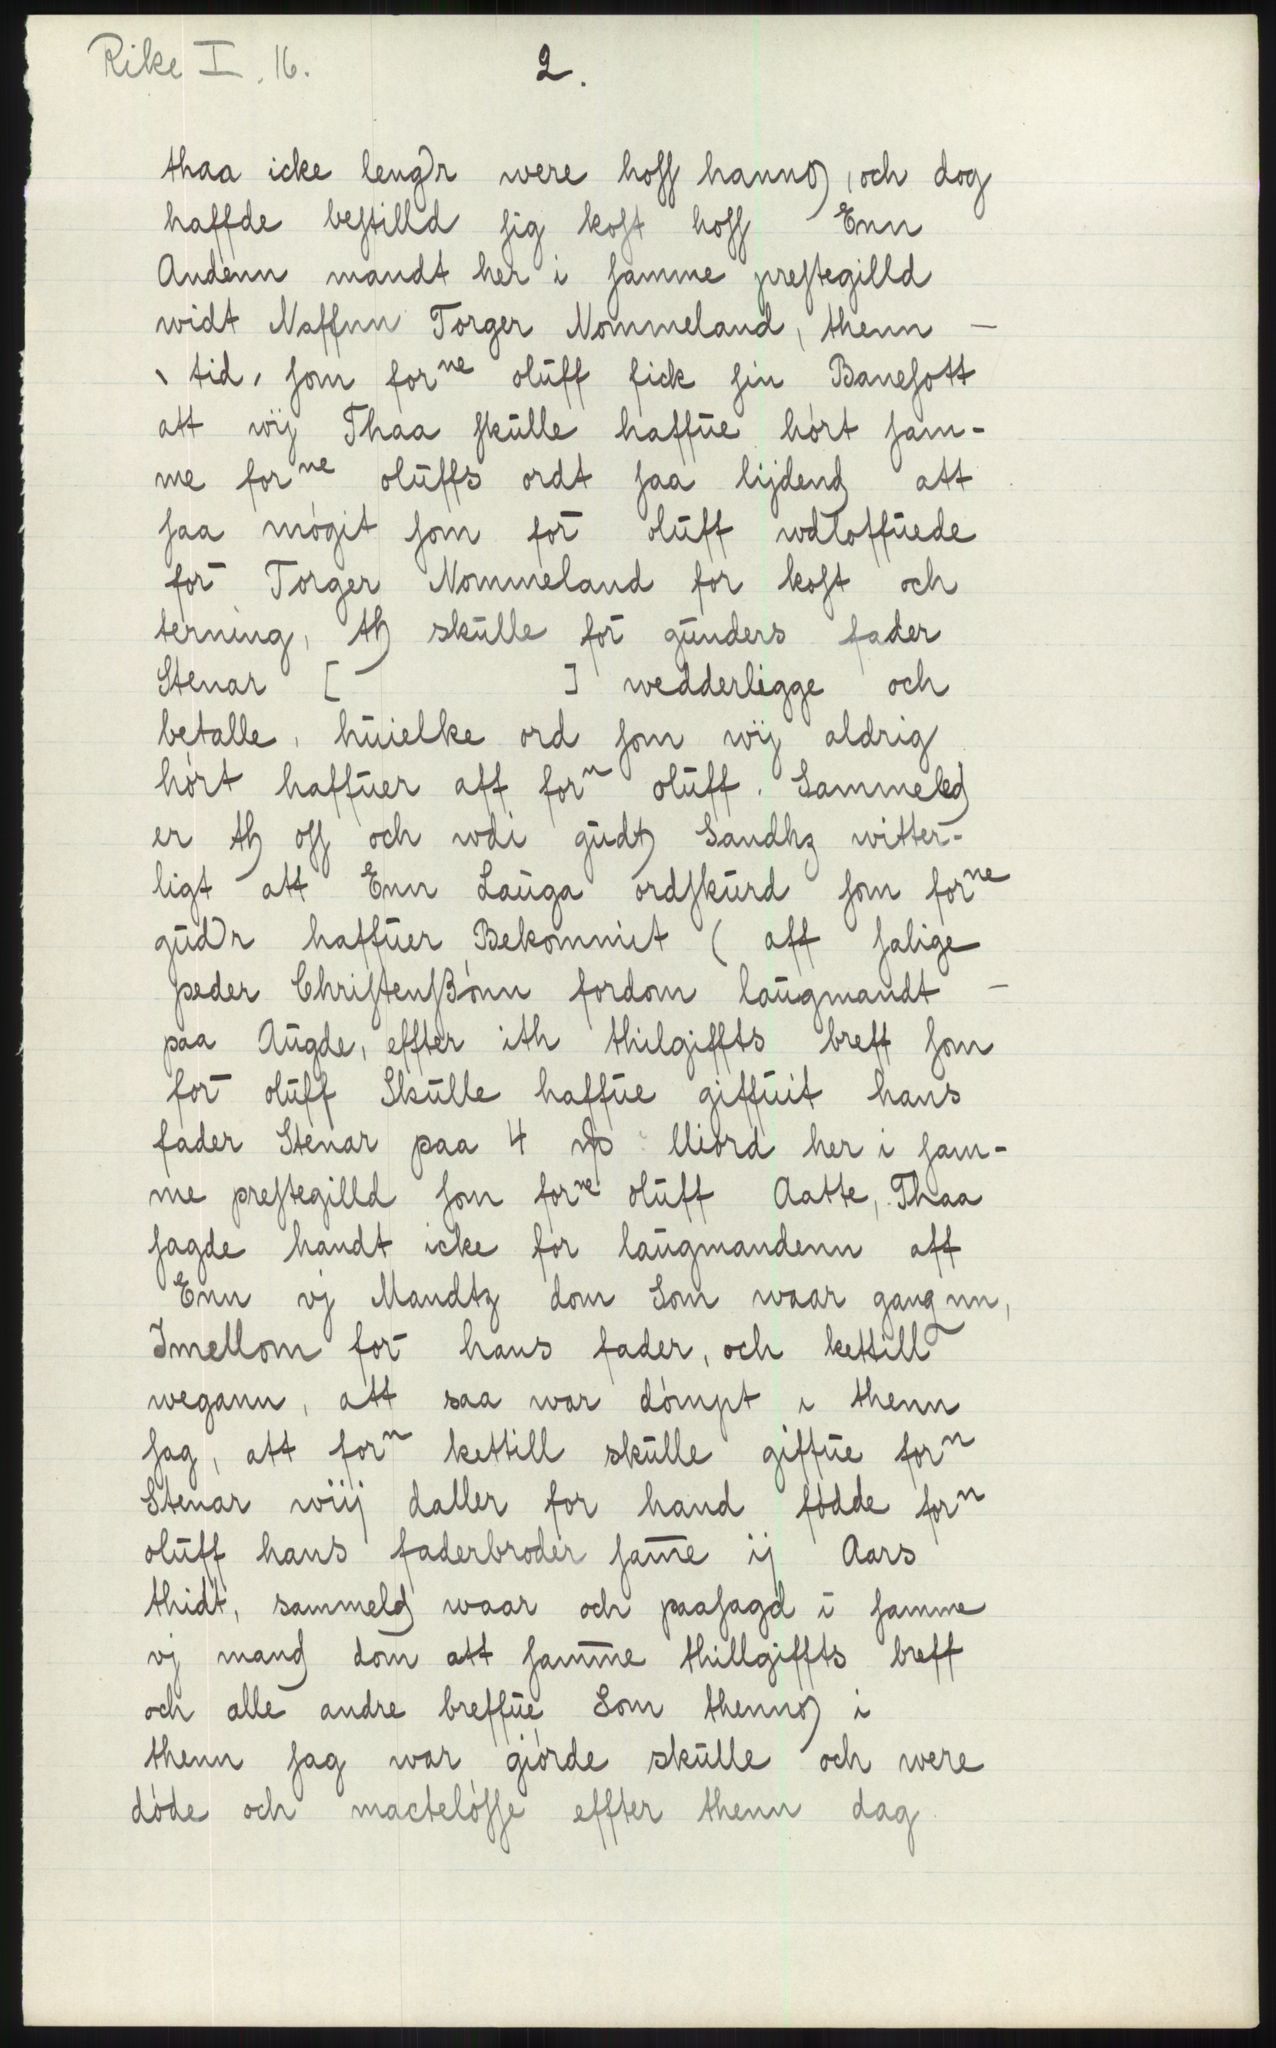 Rike I. 16.
2.
thaa icke lengr were hoss hannō, och dog
haffde bestilld sig kost hoss Enn
Andenn mandt her i samme prestegilld
widt Naffnn Torger Nommeland, thenn —
tid, som forne oluff fick sin Banesott
att wij Thaa skulle haffue hört sam-
me forne oluffs ordt saa lijdend att
saa mögit som for̄ oluff wdloffuede
for̄ Torger Nommeland for kost och
terning, th skulle for̄ gunders fader
Stenar [ ] wedderligge och
betalle, huielke ord som wij aldrig
hört haffuer aff forn oluff. Sammeled
er th oss och wdi gudz Sandhz witter-
ligt att Enn Lauga ordskurd som forne
gudr haffuer Bekommit ( aff salige
peder Christenßönn fordom laugmandt —
paa Augde, effter ith thilgiffts breff som
for̄ oluff Skulle haffue giffuit hans
fader Stenar paa 4 Uiörd her i sam-
me prestegilld som forne oluff Aatte, Thaa
sagde handt icke for laugmandenn aff
Enn vj Mandtz dom Som waar gangnn,
Imellom for̄ hans fader, och kettill
wegann, att saa war dömpt i thenn
sag, att forn kettill skulle giffue forn
Stenar wiij daller for hand födde forn
oluff hans faderbroder sam̄e ij Aars
thidt, sammeld waar och paasagd i samme
vj mand dom att sam̄e thillgiffts breff
och alle andre breffue Som thennō i
thenn sag war giörde skulle och were
döde och mactelösse effter thenn dag